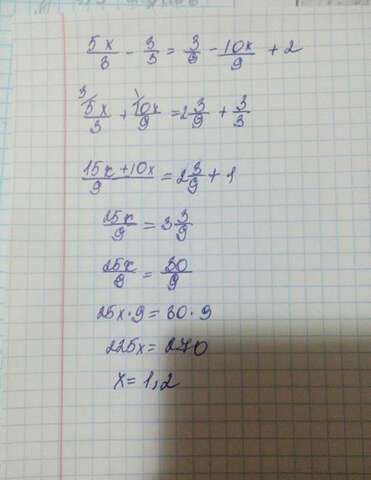 5x/3 - 3/3 = 3/9 - 10x/9 + 2
3/ 5x/3 + 1/ 10x/9 = 2 3/9 + 3/3
15x + 10x/9 = 2 3/9 + 1
25x/9 = 3 3/9
25x/9 = 30/9
25x · 9 = 30 · 9
225x = 270
x = 1,2